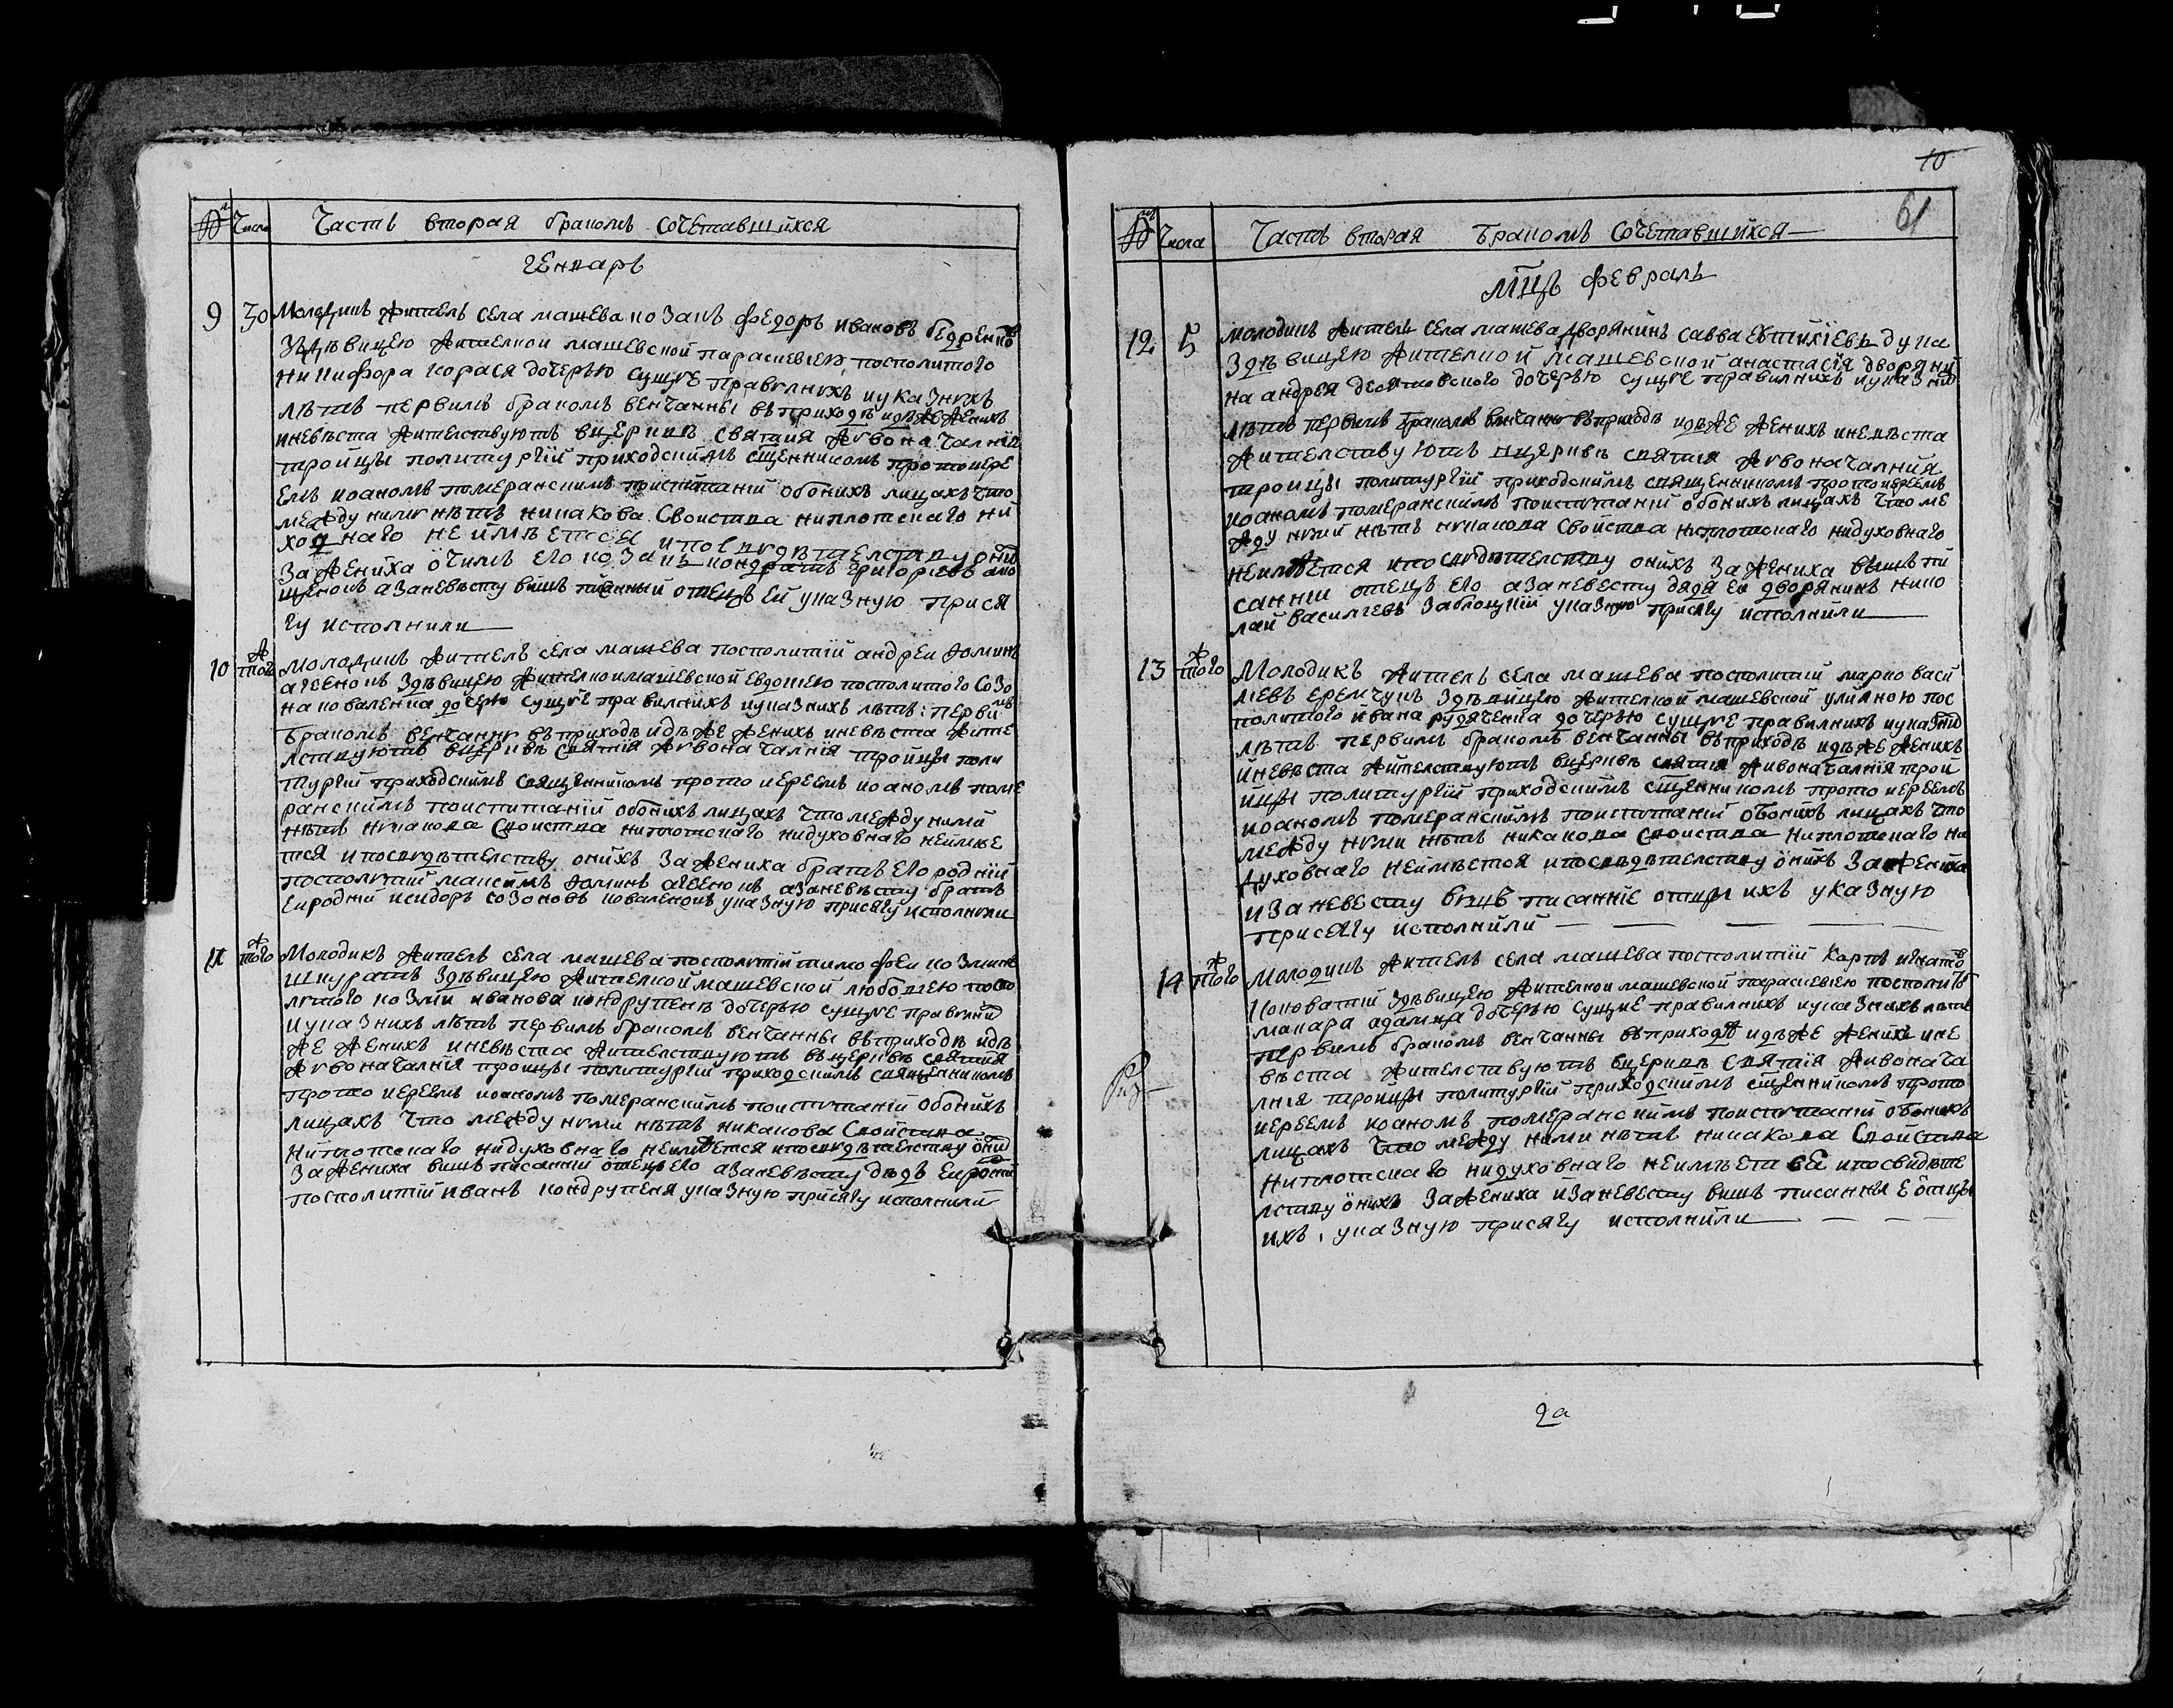 № Число Часть вторая бракомъ сочетавшихся
генварь
9 30 Молодикъ житель села машева козакъ федоръ ивановъ бедренко
здѣвицею жителкой машевской параскевіею, посполитого
никифора карася дочерью сущие правилнихъ иуказнихъ
лѣтъ первимъ бракомъ венчанны въприходѣ идѣже женихъ
иневѣста жителствуютъ вцерквѣ святия живоначалнія
тройцы политургій приходскимъ сщенникомъ протоиере
емъ иоаномъ померанскимъ поиспитаній обонихъ лицахъ что
между ними нѣтъ никакова своиства ниплотскаго ни
ховнаго не имѣется ипосвидѣтелству онихъ
заженіха отчимъ его козакъ кондратъ григориевъ
азаневѣсту вишъ писанный отецъ ей указную прися
гу исполнили
10 того ж Молодикъ житель села машева посполитій андрей фоминъ
агеенокъ здѣвицею жителкоймашевской евдокією посполитого созо
на коваленка дочерю сущие правилнихъ иуказнихъ лѣтъ: первимъ
бракомъ венчанны въприходѣ идѣже женихъ иневѣста жите
лствуютъ вцерквѣ святія живоначалнія тройцы поли
тургій приходскимъ священникомъ протоиереемъ иоаномъ поме
ранскимъ поиспитаній обонихъ лицахъ что между нимй
нѣтъ никакова своиства ниплотскаго нидуховнаго неимѣе
тся ипосвидѣтелству онихъ заженіха братъ его роднїй
посполитій максимъ фоминъ агеенокъ азаневѣсту братъ
еиродній исидоръ созоновъ коваленокъ указную присягу исполнили
11 того ж Молодикъ житель села машева посполитій тимофеи козминъ
шкуратъ здѣвицею жителкой машевской любовію поспо
литого козми иванова кондрутенъ дочерью сущие правилнихъ
иуказнихъ лѣтъ первимъ бракомъ венчанны въприходѣ идѣ
же женихъ иневѣста жителствуютъ въцерквѣ святия
живоначалнія троицы политургій приходскимъ священникомъ
протоиереемъ иоаномъ померанскимъ поиспитаній обонихъ
лицахъ что между ними нѣтъ никакова свойства
ниплотскаго нидуховнаго неимѣется ипосвидѣтелству онихъ
заженіха вишъ писаннїй отецъ его азаневѣсту дѣдъ еиродній
посполитїй иванъ кондрутеня указную присягу исполнили
10
61
№ Числа Часть вторая Бракомъ Сочетавшихся
мцъ февраль
12 5 молодикъ житель села машева дворянинъ савва евтихіевъ дука
здѣвицею жителкой машевской анастасія дворяни
на андрея десятовского дочерью сущие правилнихъ иуказних
лѣтъ первимъ бракомъ венчанно въприходѣ идѣже женихъ иневѣста
жителствуютъ вцерквѣ святия живоначалнія
троицы политургій приходскимъ священникомъ протоиереемъ
иоаномъ померанскимъ поиспитаній обонихъ лицахъ что ме
жду ними нѣтъ никакова свойства ниплотскаго нидуховнаго
неимѣется ипосвидѣтелству онихъ заженіха вишъ пи
санній отецъ его азаневесту дядя ея дворянинъ нико
лай василіевъ заблоцкій указную присягу исполнили
13 того ж Молодикъ житель села машева посполитій марко васи
лієвъ еремчукъ здѣвйцею жителкой машевской улияною пос
политого ивана рудяченка дочерью сущие правилнихъ иуказних
лѣтъ первимъ бракомъ венчанны въприходѣ идѣже женихъ
иневѣста жителствуютъ вцерквѣ святия живоначалнія трой
ицы политургій приходскимъ сщенникомъ протоиереемъ
иоаномъ померанскимъ поиспитаній обонихъ лицахъ что
между ними нѣтъ никакова своиства ниплотскаго ни
духовнаго неимѣется ипосвидѣтелству онихъ заженіха
изаневесту више писанніе отцы ихъ указную
присягу исполнили
14 того ж Молодикъ житель села машева посполитій карпъ игнатов
коноватій здѣвицею жителкой машевской параскевією посполитого
макара адамца дочерью сущие правилнихъ иуказнихъ лѣтъ
первимъ бракомъ венчанны въприходѣ идѣже женихъ ине
вѣста жителствуютъ вцерквѣ святія живонача
лнія троицы политургій приходскимъ сщенникомъ прото
иереемъ иоаномъ померанскимъ поиспитаній обонихъ
лицахъ что между ними нѣтъ никакова свойства
ниплотскаго нидуховнаго неимѣется ипосвидѣте
лству онихъ заженіха изаневесту вишъ писанніе отцы
ихъ, указную присягу исполнили
2а